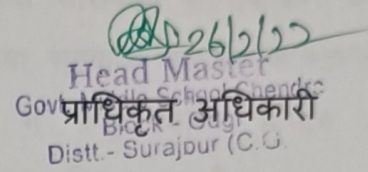 26/2/22
Head Master
Govt School Shendra
प्राधिकृत अधिकारी
Distt.- Surajpur (C.G.